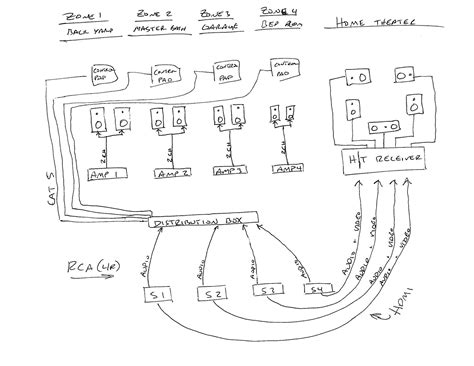 ZONE 1
BACK YARD
ZONE 2
MASTER BATH
ZONE 3
GARAGE
ZONE 4
BED ROOM
HOME THEATER
CONTROL PAD
CONTROL PAD
CONTROL PAD
CONTROL PAD
2CH
2CH
2CH
2CH
AMP 1
AMP 2
AMP 3
AMP 4
H/T RECEIVER
CAT 5
DISTRIBUTION BOX
RCA (L/R)
AUDIO
AUDIO
AUDIO
AUDIO
AUDIO + VIDEO
AUDIO + VIDEO
AUDIO + VIDEO
AUDIO + VIDEO
S1
S2
S3
S4
HDMI